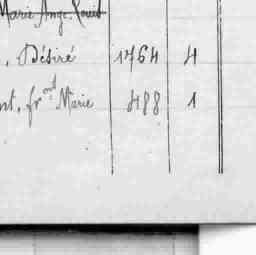 Marie Ange Louis
, Désiré 1764 4
nt, fr^ont Marie 488 1